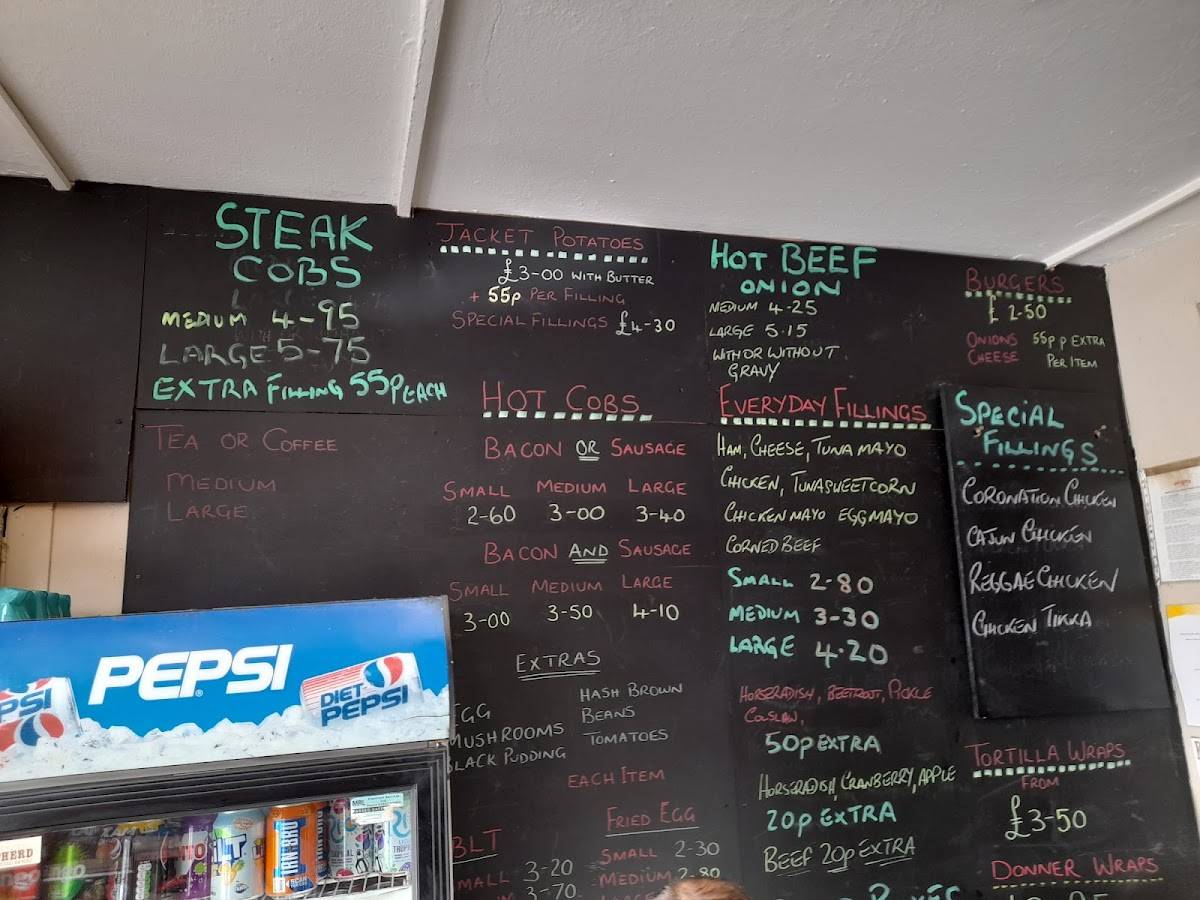 STEAK
COBS
MEDIUM 4-95
LARGE 5-75
EXTRA FILLING 55P EACH
TEA OR COFFEE
MEDIUM
LARGE
JACKET POTATOES
£3-00 WITH BUTTER
+ 55p PER FILLING
SPECIAL FILLINGS £4-30
HOT COBS
BACON OR SAUSAGE
SMALL MEDIUM LARGE
£2-60 3-00 3-40
BACON AND SAUSAGE
SMALL MEDIUM LARGE
3-00 3-50 4-10
EXTRAS
EGG HASH BROWN
MUSHROOMS BEANS
BLACK PUDDING TOMATOES
EACH ITEM
BLT
SMALL 3-20
3-70
FRIED EGG
SMALL 2-30
MEDIUM 2-80
HOT BEEF
ONION
MEDIUM 4-25
LARGE 5-15
WITH OR WITHOUT
GRAVY
EVERYDAY FILLINGS
HAM, CHEESE, TUNA MAYO
CHICKEN, TUNA SWEETCORN
CHICKEN MAYO EGG MAYO
CORNED BEEF
SMALL 2-80
MEDIUM 3-30
LARGE 4-20
HORSERADISH, BEETROOT, PICKLE
COLSLAW,
50p EXTRA
HORSERADISH, CRANBERRY, APPLE
20p EXTRA
BEEF 20p EXTRA
BURGERS
£2-50
ONIONS 55p p EXTRA
CHEESE PER ITEM
SPECIAL
FILLINGS
CORONATION CHICKEN
CAJUN CHICKEN
REGGAE CHICKEN
CHICKEN TIKKA
TORTILLA WRAPS
FROM
£3-50
DONNER WRAPS
PEPSI
DIET
PEPSI
PSI
HERD
IRN-BRU